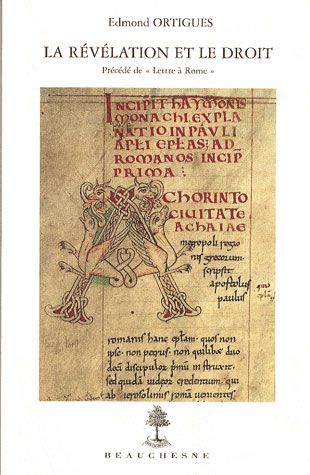 Edmond ORTIGUES
LA RÉVÉLATION ET LE DROIT
Précédé de « Lettre à Rome »
INCIPIT hAYMONIS
MONAChI EXPLA
NATIO IN PAVLI
APłI EPłAS; AD
ROMANOS INCIP
PRIMA:
A ChORINTO
CIVITATE
AChAIAE
metropoli regio
nis grecorum
scripsit
apostolus
paulus
romanis hanc epłam. quos non
ipse. non petrus. non quilibet duo
deci discipulor primu instruxit.
sed quida iudeor credentiu. qui
ab ierosolimis roma venientes
BEAUCHESNE